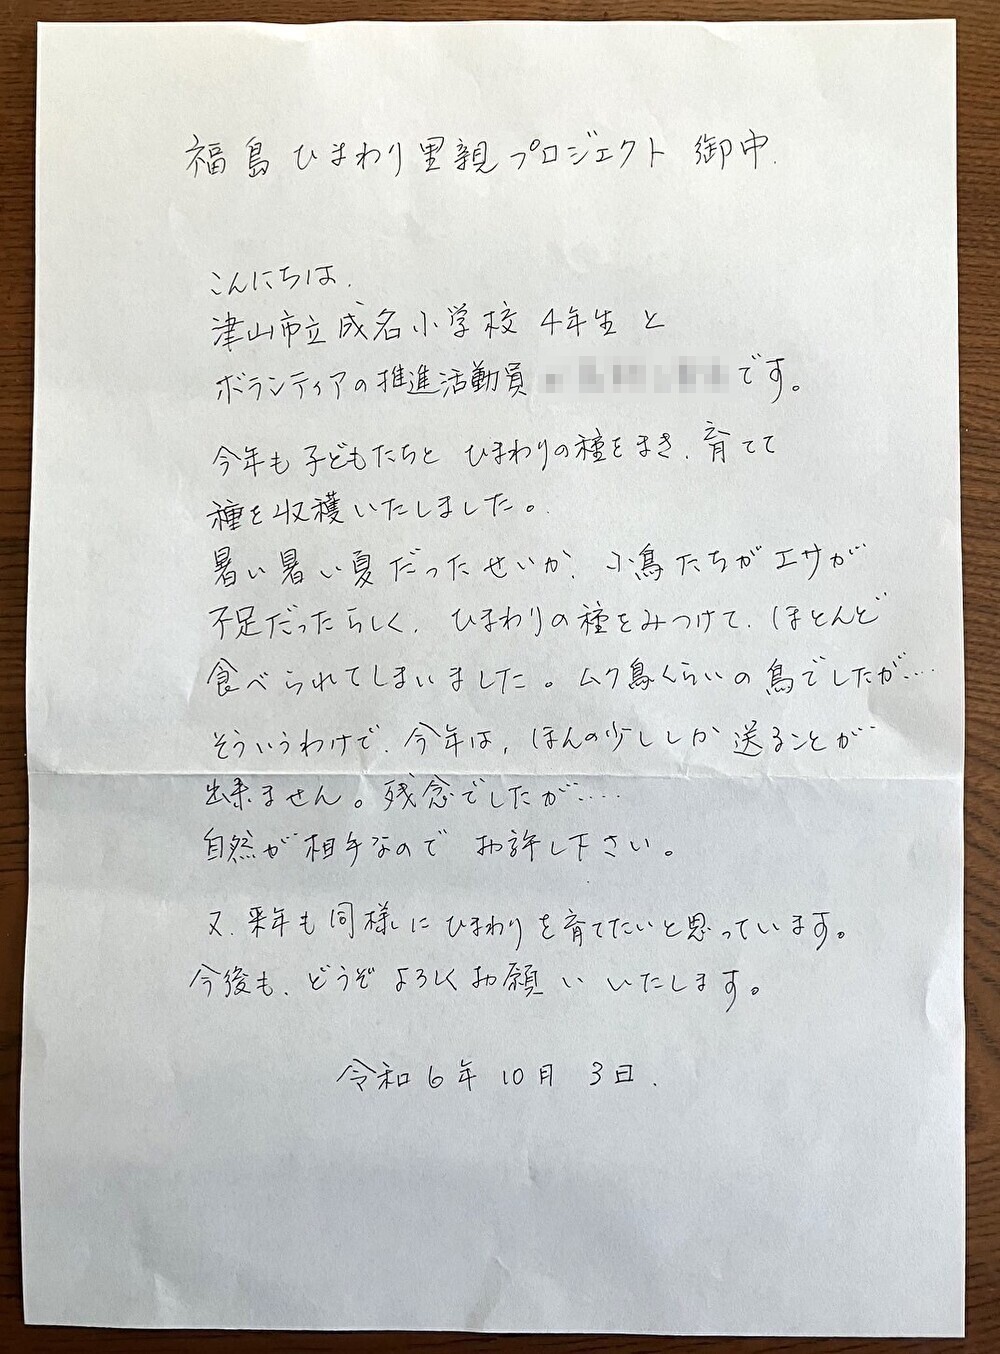 福島ひまわり里親プロジェクト 御中.
こんにちは.
津山市立成名小学校 4年生と
ボランティアの推進活動員 です。
今年も子どもたちと ひまわりの種をまき、育てて
種を収穫いたしました。
暑い暑い夏だったせいか、小鳥たちがエサが
不足だったらしく、ひまわりの種をみつけて、ほとんど
食べられてしまいました。ムク鳥くらいの鳥でしたが…
そういうわけで、今年は、ほんの少ししか送ることが
出来ません。残念でしたが‥‥
自然が相手なので お許し下さい。
又、来年も同様にひまわりを育てたいと思っています。
今後も、どうぞよろしくお願いいたします。
令和6年10月 3日.